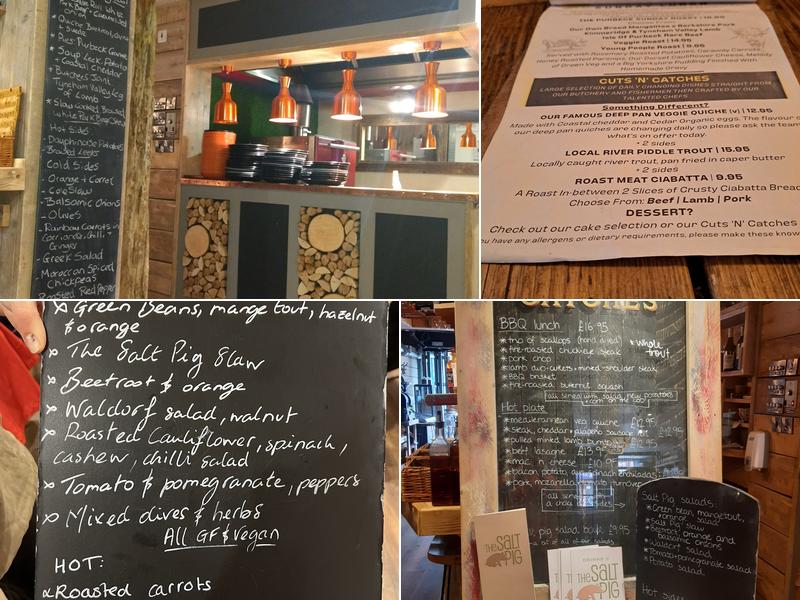 Quiche, Balsamic Onions
& Suede
Soup, Leek, Potato
& Coastal Cheddar
Butchers Joint
Tyneham Valley Leg
of Lamb
Slow Cooked Roasted
Hot Sides
Dauphinoise Potatoes
Braised Leeks
Cold Sides
- Orange & Carrot
- Coleslaw
- Balsomic Onions
- Olives
- Rainbow Carrots in
Corriander, Chilli &
Ginger
- Greek Salad
- Moroccan Spiced
Chickpeas
Roasted Red Pepper
THE PURBECK SUNDAY ROAST | 16.95
Our Own Breed Mangalitza x Berkshire Pork
Kimmeridge & Tyneham Valley Lamb
Isle Of Purbeck Rare Beef
Veggie Roast | 14.95
Young People Roast | 9.95
Served with Rosemary Roasted Potatoes, Caraway Carrots,
Honey Roasted Parsnips, Our Dorset Cauliflower Cheese, Melody
of Green Veg and a Big Yorkshire Pudding Finished With
Homemade Gravy
CUTS 'N' CATCHES
LARGE SELECTION OF DAILY CHANGING DISHES STRAIGHT FROM
OUR BUTCHERY AND FISHERMEN THEN CRAFTED BY OUR
TALENTED CHEFS
Something Different?
OUR FAMOUS DEEP PAN VEGGIE QUICHE (v) | 12.95
Made with Coastal cheddar and Cedar Organic eggs. The flavour o
our deep pan quiches are changing daily so please ask the team
what's on offer today.
+ 2 sides
LOCAL RIVER PIDDLE TROUT | 15.95
Locally caught river trout, pan fried in caper butter
+ 2 sides
ROAST MEAT CIABATTA | 9.95
A Roast In-between 2 Slices of Crusty Ciabatta Bread
Choose From: Beef | Lamb | Pork
DESSERT?
Check out our cake selection or our Cuts 'N' Catches
you have any allergens or dietary requirements, please make these know
Green Beans, mange tout, hazelnut
& orange
The Salt Pig Slaw
Beetroot & orange
Waldorf salad, walnut
Roasted Cauliflower, spinach,
cashew, chilli salad
Tomato & pomegranate, peppers
Mixed dives & herbs
All GF & Vegan
HOT:
Roasted carrots
CATCHES
BBQ lunch £16.95
* trio of scallops (hand dived)
* fire-roasted chuckeye steak
* pork chop
* lamb two-ways, mixed-shoulder steak
* BBQ brisket
* fire-roasted butternut squash
* whole trout
all served with salad, new potatoes
+ corn on the cob
Hot plate
* mediterranean veg quiche £12.95
* Steak, cheddar & jalapeño sausage
* pulled minced lamb
* beef lasagne £13.95
* mac n cheese £10.95
* bacon, potato, spinach enchiladas
* pork, mozzarella, tomato turnover
pig salad bowl £9.95
THE SALT PIG
DRINKS
THE SALT PIG
Salt Pig salads...
* Green bean, mangetout,
orange salad
* Salt Pig slaw
* Beetroot, orange and
balsamic onions
* Waldorf salad
* Tomato & pomegranate salad
* Potato salad
Hot sides